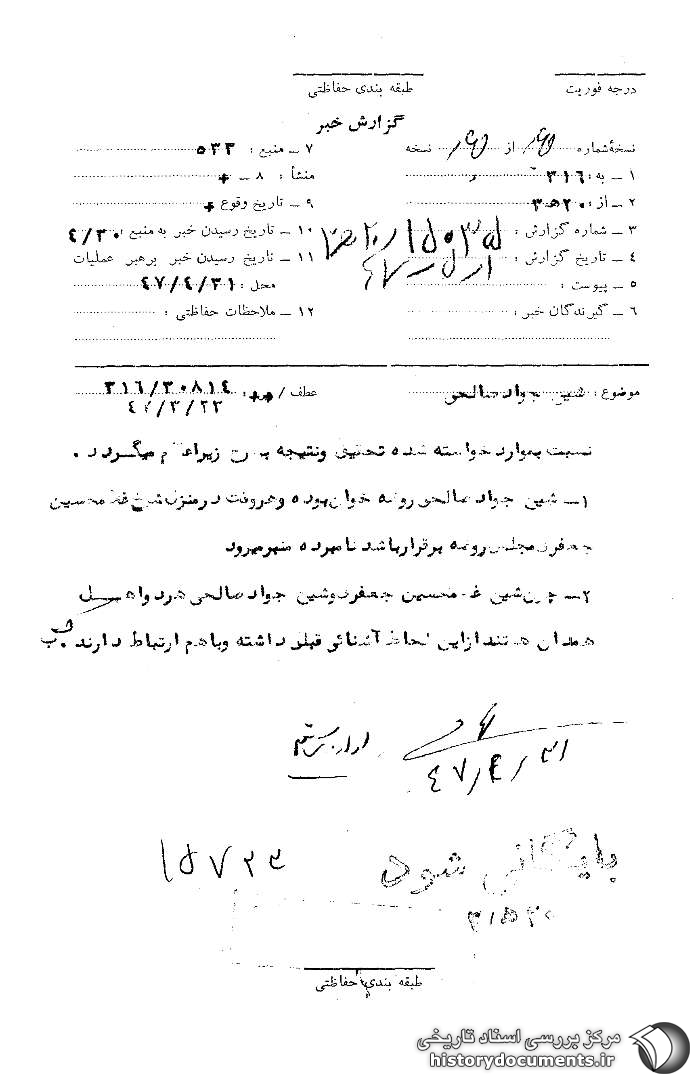 درجه فوریت
طبقه بندی حفاظتی
گزارش خبر
نسخهٔ شماره از نسخه
۱ ـ به: ۳۱۶
۲ ـ از: ۲۰ ﻫ ۳
۳ ـ شماره گزارش :
۴ ـ تاریخ گزارش :
۵ ـ پیوست :
۶ ـ گیرندگان خبر :
۷ ـ منبع : ۵۳۳
۸ ـ منشأ :
۹ ـ تاریخ وقوع
۱۰ ـ تاریخ رسیدن خبر به منبع : ۴/۳۰
۱۱ ـ تاریخ رسیدن خبر برهبر عملیات
محل : ۴۷/۴/۳۱
۱۲ ـ ملاحظات حفاظتی :
موضوع : شیخ جواد صالحی
عطف / : ۳۱۶/۳۰۸۱۴
۴۷/۳/۲۳
نسبت بموارد خواسته شده تحقیق ونتیجه بشرح زیراعلام میگردد .
۱ـ شیخ جواد صالحی روضه خوان بوده وهروقت درمنزل شیخ غلامحسین
جعفری مجلس روضه برقرارباشد نامبرده منبرمیرود
۲ـ چون شیخ غلامحسین جعفری وشیخ جواد صالحی هردو اهل
همدان هستند ازاین لحاظ آشنائی قبلی داشته وباهم ارتباط دارند .
۴۷/۴/۳۱
بایگانی شود
۳۱۵۲۰
۱۵۷۲۳
طبقه بندی حفاظتی
مرکز بررسی اسناد تاریخی
historydocuments.ir